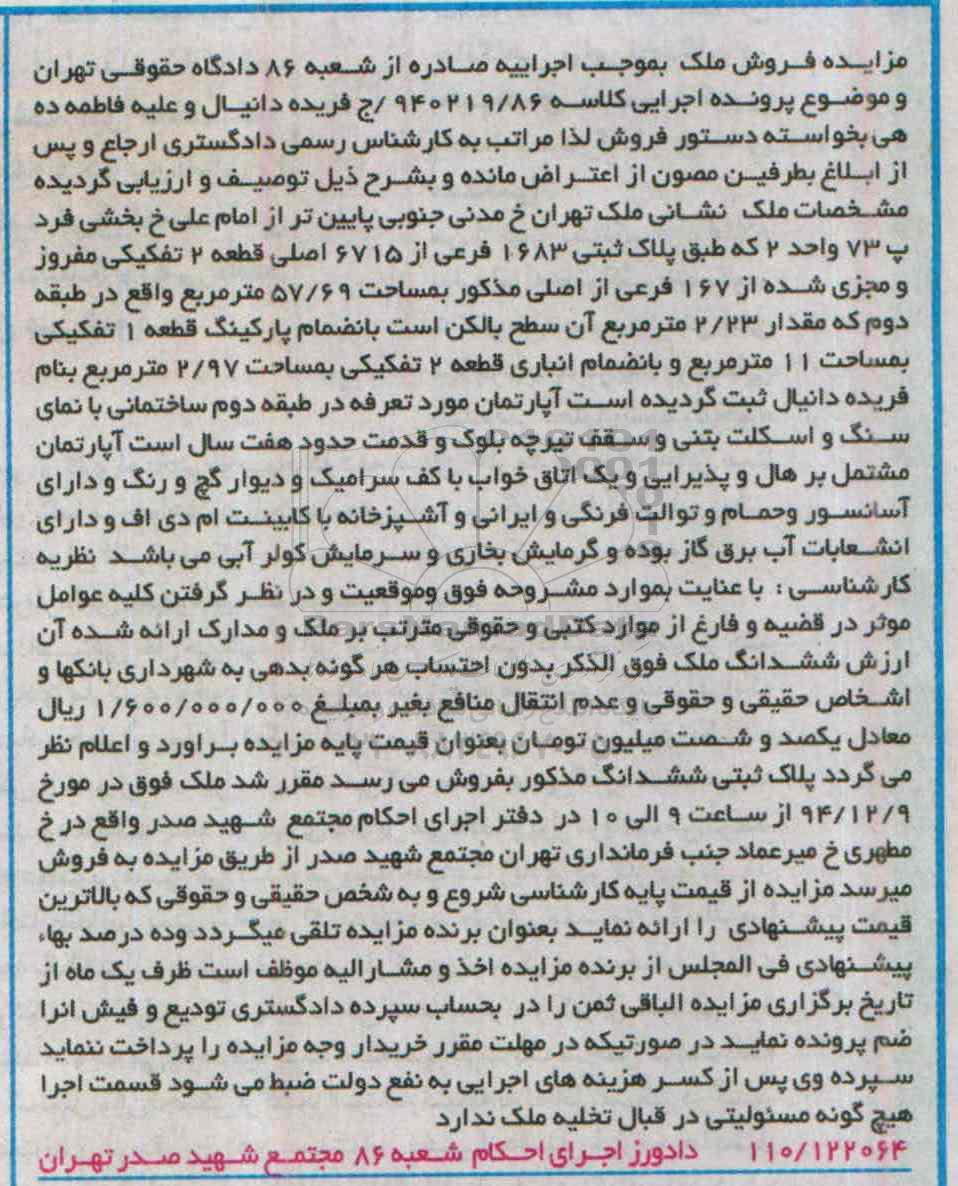 مزایده فروش ملک بموجب اجراییه صادره از شعبه ۸۶ دادگاه حقوقی تهران
و موضوع پرونده اجرایی کلاسه ۹۴۰۲۱۹/۸۶ /ج فریده دانیال و علیه فاطمه ده
هی بخواسته دستور فروش لذا مراتب به کارشناس رسمی دادگستری ارجاع و پس
از ابلاغ بطرفین مصون از اعتراض مانده و بشرح ذیل توصیف و ارزیابی گردیده
مشخصات ملک نشانی ملک تهران خ مدنی جنوبی پایین تر از امام علی خ بخشی فرد
پ ۷۳ واحد ۲ که طبق پلاک ثبتی ۱۶۸۳ فرعی از ۶۷۱۵ اصلی قطعه ۲ تفکیکی مفروز
و مجزی شده از ۱۶۷ فرعی از اصلی مذکور بمساحت ۵۷/۶۹ مترمربع واقع در طبقه
دوم که مقدار ۲/۲۳ مترمربع آن سطح بالکن است بانضمام پارکینگ قطعه ۱ تفکیکی
بمساحت ۱۱ مترمربع و بانضمام انباری قطعه ۲ تفکیکی بمساحت ۲/۹۷ مترمربع بنام
فریده دانیال ثبت گردیده است آپارتمان مورد تعرفه در طبقه دوم ساختمانی با نمای
سنگ و اسکلت بتنی و سقف تیرچه بلوک و قدمت حدود هفت سال است آپارتمان
مشتمل بر هال و پذیرایی و یک اتاق خواب با کف سرامیک و دیوار گچ و رنگ و دارای
آسانسور وحمام و توالت فرنگی و ایرانی و آشپزخانه با کابینت ام دی اف و دارای
انشعابات آب برق گاز بوده و گرمایش بخاری و سرمایش کولر آبی می باشد نظریه
کارشناسی : با عنایت بموارد مشروحه فوق وموقعیت و در نظر گرفتن کلیه عوامل
موثر در قضیه و فارغ از موارد کتبی و حقوقی مترتب بر ملک و مدارک ارائه شده آن
ارزش ششدانگ ملک فوق الذکر بدون احتساب هر گونه بدهی به شهرداری بانکها و
اشخاص حقیقی و حقوقی و عدم انتقال منافع بغیر بمبلغ ۱/۶۰۰/۰۰۰/۰۰۰ ریال
معادل یکصد و شصت میلیون تومان بعنوان قیمت پایه مزایده براورد و اعلام نظر
می گردد پلاک ثبتی ششدانگ مذکور بفروش می رسد مقرر شد ملک فوق در مورخ
۹۴/۱۲/۹ از ساعت ۹ الی ۱۰ در دفتر اجرای احکام مجتمع شهید صدر واقع در خ
مطهری خ میرعماد جنب فرمانداری تهران مجتمع شهید صدر از طریق مزایده به فروش
میرسد مزایده از قیمت پایه کارشناسی شروع و به شخص حقیقی و حقوقی که بالاترین
قیمت پیشنهادی را ارائه نماید بعنوان برنده مزایده تلقی میگردد وده درصد بهاء
پیشنهادی فی المجلس از برنده مزایده اخذ و مشارالیه موظف است ظرف یک ماه از
تاریخ برگزاری مزایده الباقی ثمن را در بحساب سپرده دادگستری تودیع و فیش انرا
ضم پرونده نماید در صورتیکه در مهلت مقرر خریدار وجه مزایده را پرداخت ننماید
سپرده وی پس از کسر هزینه های اجرایی به نفع دولت ضبط می شود قسمت اجرا
هیچ گونه مسئولیتی در قبال تخلیه ملک ندارد
۱۱۰/۱۲۲۰۶۴ دادورز اجرای احکام شعبه ۸۶ مجتمع شهید صدر تهران